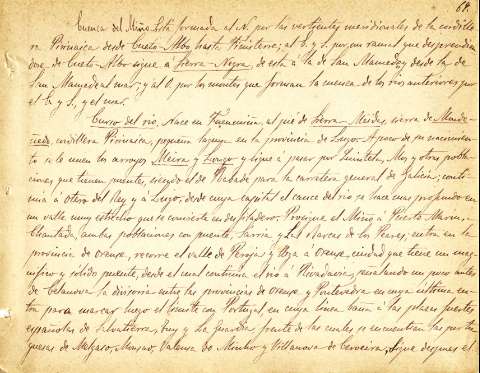 64.
Cuenca del Miño. Está formada al N. por las vertientes meridionales de la cordille-
ra Pirinaica desde Cueto-Albo hasta Finisterre; al E. y S. por un ramal que desprendién-
dose de Cueto-Albo sigue a Sierra-Negra, de esta a la de San Mamed y desde la de
San Mamed al mar, y al O. por los montes que forman la cuenca de los ríos anteriores por
el O. y S. y el mar.
Curso del río. Nace en Fuenmiña, al pié de Sierra-Meidas, sierra de Mondo-
ñedo, cordillera Pirinaica, pequeña laguna en la provincia de Lugo. A poco de su nacimien-
to se le unen los arroyos Meira y Luago y sigue a pasar por Quintela, Mos y otras pobla-
ciones que tienen puente, siendo el de Rabade para la carretera general de Galicia; conti-
nua a Otero del Rey y a Lugo, desde cuya capital el cauce del río se hace mas profundo en
un valle muy estrecho que se convierte en desfiladero. Prosigue el Miño á Puerto Marin,
Chantada, ambas poblaciones con puente, Sarria y las Barcas de los Peares, entra en la
provincia de Orense, recorre el valle de Peroja y llega á Orense, ciudad que tiene un mag-
nífico y sólido puente, desde el cual continúa el río a Rivadavia, señalando un poco antes
de Celanova la divisoria entre las provincias de Orense y Pontevedra en cuya última en-
tra para marcar luego el límite con Portugal, en cuya línea baña á las plazas fuertes
españolas de Salvatierra, Tuy y La Guardia, frente de las cuales se encuentran las portu-
guesas de Melgaso, Monsao, Valensa do Minho y Villanova de Cerveira. Sigue despues el